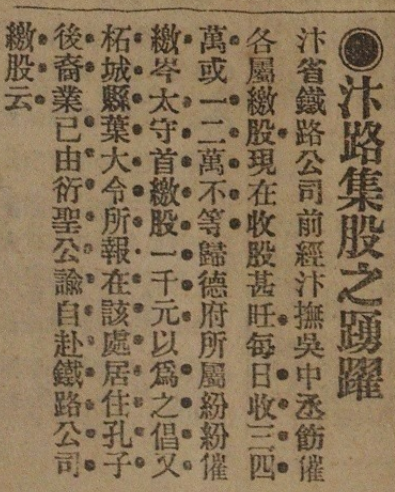 ●汴路集股之踴躍
汴省鐵路公司前經汴撫吳中丞飭催
各屬繳股現在收股甚旺每日收三四
萬或一二萬不等歸德府所屬紛紛催
繳岑太守首繳股一千元以爲之倡又
柘城縣葉大令所報在該處居住孔子
後裔業已由衍聖公諭自赴鐵路公司
繳股云